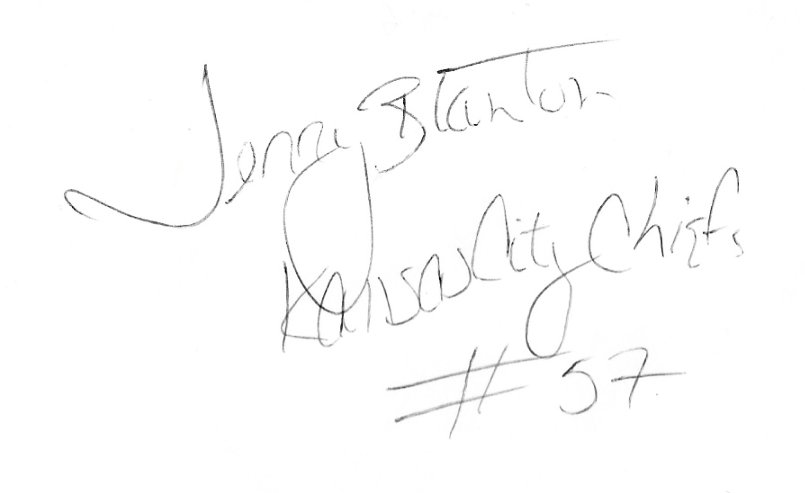 Jerry Blanton
Kansas City Chiefs
# 57